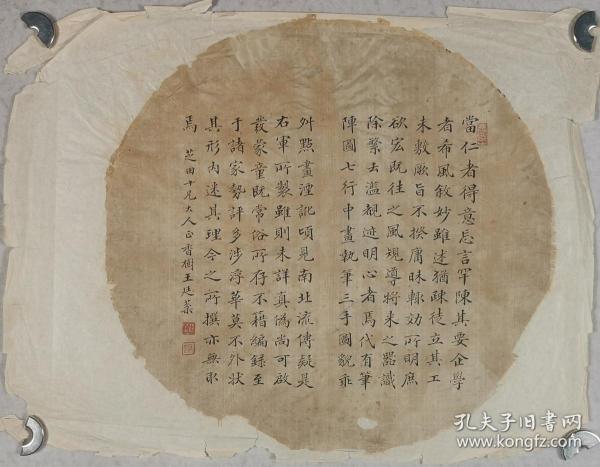 當仁者得意忘言罕陳其要企學
者希風敘妙雖述猶疎徒立其工
未敷厥旨不揆庸昧輒効所明庶
欲宏既往之風規導將来之器識
除繁去濫覩迹明心者焉代有筆
陣圖七行中畫執筆三手圖貌乖
舛點畫湮訛頃見南北流傳疑是
右軍所製雖則未詳真偽尚可啟
發蒙童既常俗所存不藉編録至
于諸家勢評多涉浮華莫不外状
其形內迷其理今之所撰亦無取
焉
芝田十兄大人正 香樹王廷
孔夫子旧书网
www.kongfz.com